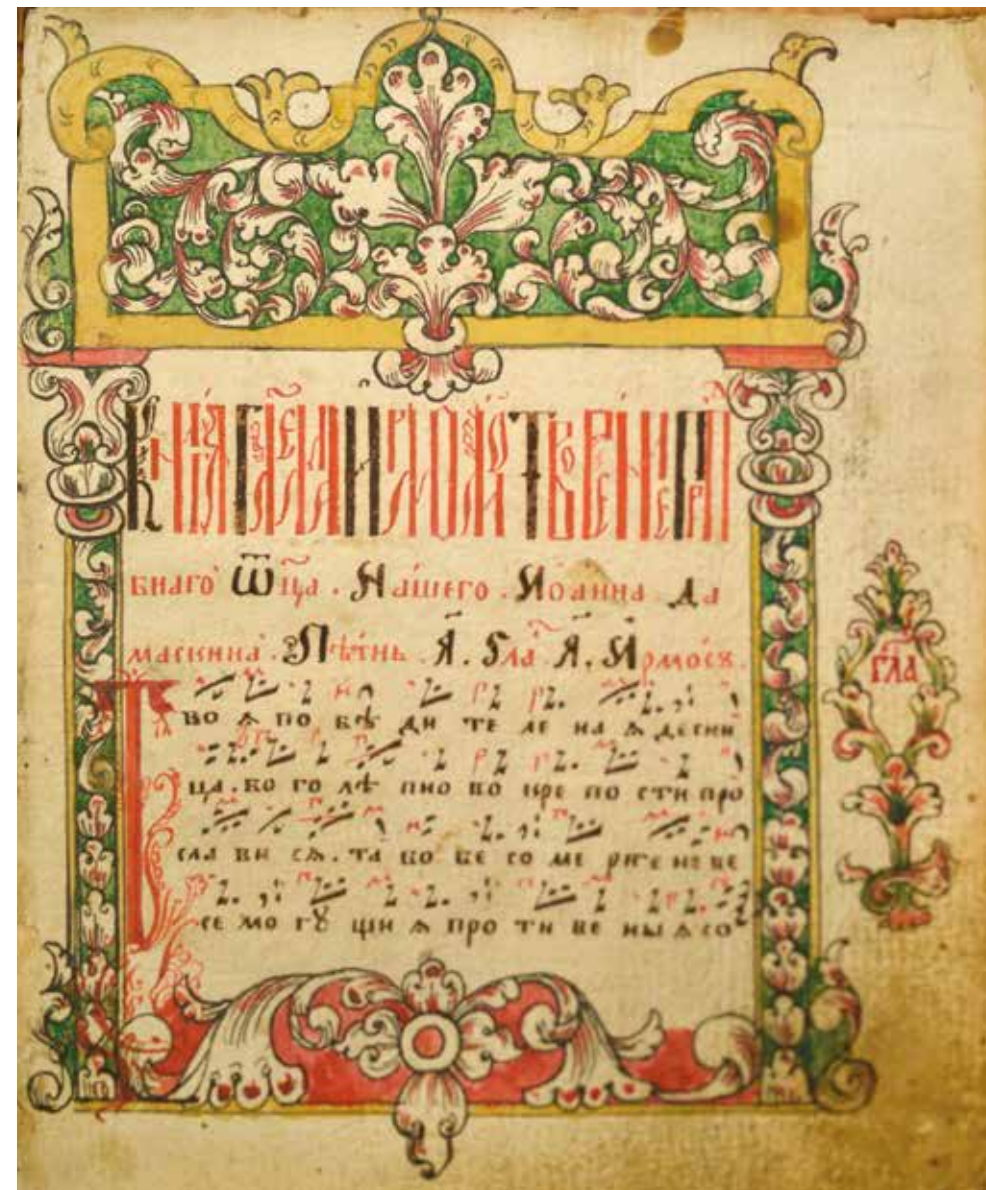 Книга гл҃емаѧ Ирмолой Творение прп
бнаго Ѿц҃а . Нашего . Иоанна Да
маскина . Пѣснь . А҃ . Гла А҃ . Ирмосъ .
Тво ѧ по бѣ ди те ле на ѧ десни
ца . бо го лѣ пно во кре по сти про
сла ви сѧ . та бо бе со ме рте не ве
се мо гꙋ щи ѧ про ти ве ны ѧ со
гла